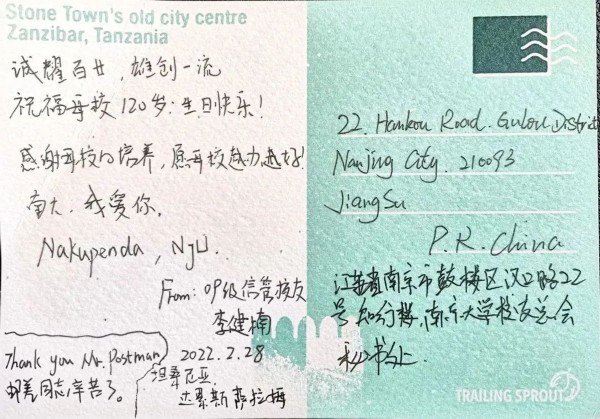 Stone Town's old city centre
Zanzibar, Tanzania
诚耀百廿，雄创一流
祝福母校120岁：生日快乐！
感谢母校的培养，愿母校越办越好！
南大，我爱你。
Nakupenda, NJU.
From: 09级信管校友
李建楠
2022.2.28
坦桑尼亚
达累斯萨拉姆
Thank you Mr. Postman
邮差同志辛苦了。
22. Hankou Road. Gulou District
Nanjing City. 210093
JiangSu
P.R. China
江苏省南京市鼓楼区汉口路22
号知行楼，南京大学校友总会
秘书处.
TRAILING SPROUT